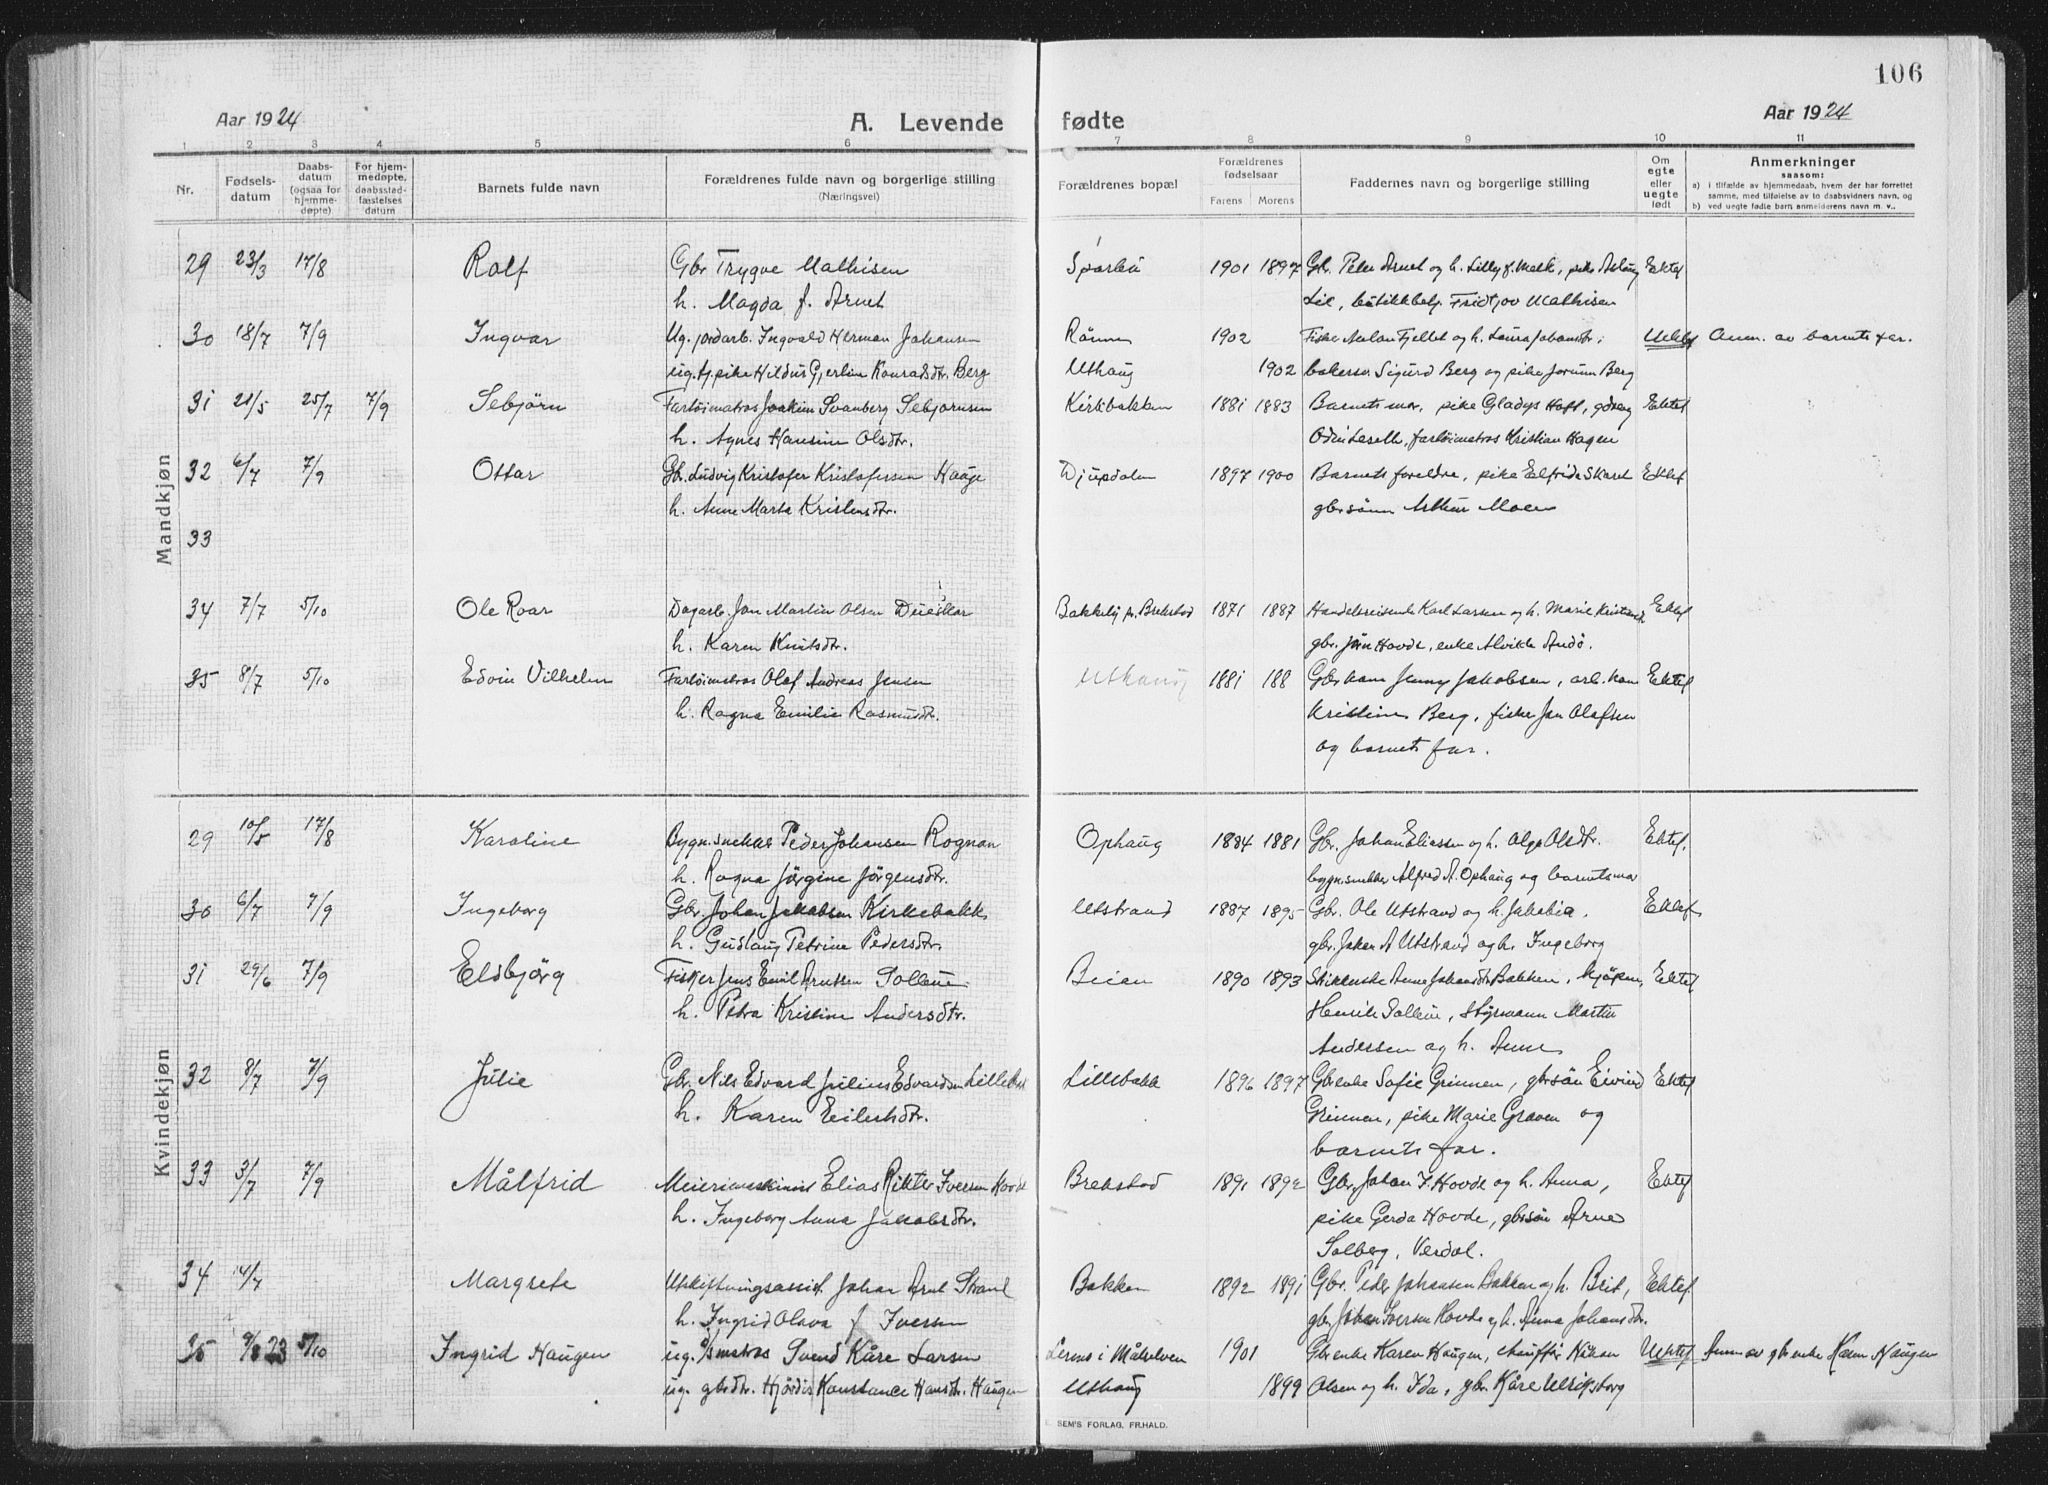 106
Aar 1924 A. Levende fødte Aar 1924
1 2 3 4 5 6 7 8 9 10 11
Nr. Fødsels-datum Daabs-datum (ogsaa for hjemme-døpte) For hjem-medøpte, daabsstad-fæstelses datum Barnets fulde navn Forældrenes fulde navn og borgerlige stilling (Næringsvei) Forældrenes bopæl Forældrenes fødselsaar Farens Morens Faddernes navn og borgerlige stilling Om egte eller uegte født Anmerkninger saasom:
a) i tilfælde av hjemmedaab, hvem der har forrettet samme, med tilføielse av to daabsvidners navn, og
b) ved uegte fødte barn anmelderens navn m. v..
Mandkjøn
29 23/3 17/8 Rolf Gbr Trygve Mathisen 1901 1897 Gbr. Peder Arnet og h. Lilly f. Melk, pike Aslaug Ektef
h. Magda f. Arnet Lie, butikkbetj. Fridtjov Mathisen
30 18/7 7/9 Ingvar Ug. jordarb. Ingvald Herman Johansen 1902 og h. Laura Johansdtr. Uektef Anm. av barnets far.
ug. tj. pike Hildur Gjerlin Konradsdtr. Berg Uthaug 1902 bakersv. Sigurd Berg og pike Jorunn Berg
31 21/5 25/7 7/9 Sebjörn Fartöimatros Joakim Svanberg Sebjørnsen Kirkebakken 1881 1883 Barnets mor, pike Gladys Hoff, Ektef
h. Agnes Hansine Olsdtr. fartöimatros Kristian Hagen
32 6/7 7/9 Ottar Gbr. Ludvig Kristofer Kristofersen Hauge Djupdalen 1897 1900 Barnets foreldre, pike Elfrida Skaret Ektef
h. Anne Marta Kristensdtr. gbrsönn Arthur Moen
33
34 7/7 5/10 Ole Roar Dagarb. Jon Martin Olsen h. Karen Knutsdtr. Bakkely pr. Brekstad 1871 1887 Handelsreisende Karl Larsen og h. Marie Kristansdtr Ektef
gbr. Jön Hovde, enke Alvilde Andö.
35 8/7 5/10 Edvin Vilhelm Fartöimatros Olaf Andreas Jensen Uthaug 1881 188 Gbrkone Jenny Jakobsen, arb. kone Ektef
h. Ragna Emilie Rasmusdtr. Kristine Berg, fisker Jon Olafsen
og barnets far.
Kvindekjøn
29 10/5 17/8 Karoline Bygn.snekker Peder Johansen Rognan Ophaug 1884 1881 Gbr. Johan Eliassen og h. Olga Olsdtr. Ektef.
h. Ragna Jörgine Jörgensdtr. bygn.snekker Alfred A. Ophaug og barnets mor
30 6/7 7/9 Ingeborg Gbr. Johan Jakobsen Kirkebakk Utstrand 1887 1895 Gbr. Ole Utstrand og h. Jakobia. Ektef
h. Gudlaug Petrine Pedersdtr. gbr. Johan A Utstrand og h. Ingeborg
31 29/6 7/9 Elsbjörg Fisker Jens Emil Arntsen Sollem Beian 1890 1893 Anne Johansdtr Bakken, Ektef
h. Petra Kristine Andersdtr. Henrik Sollem, Styrmann Martin
Andersen og h. Anne
32 8/7 7/9 Julie Gbr. Nils Edvard Julius Edvardsen Lillebakk Lillebakk 1896 1897 Gbrenke Sofie Grinnen, gbrsön Eivind Ektef
h. Karen Eilertsdtr. Grinnen, pike Marie Graven og
barnets far.
33 3/7 7/9 Målfrid Meierimaskinist Elias Rikter Iversen Hovde Brekstad 1891 1892 Gbr. Johan I. Hovde og h. Anna, Ektef
h. Ingeborg Anna Jakobsdtr. pike Gerda Hovde, gbrsön Arne
Solberg, Verdal.
34 14/7 Margrete Utskiftningsassist. Johan Arnt Strand Bakken 1892 1891 Gbr. Peder Johansen Bakken og h. Brit, Ektef
h. Ingrid Olava f Iversen gbr Johan Iversen Hovde og h. Anna Johansdtr.
35 9/8 23 5/10 Ingrid Haugen ug. matros Svend Kåre Larsen i Målselven 1901 Gbrenke Karen Haugen, chauffør Håkon Uektef Anm av gbrenke Karen Haugen
ug. gbrdtr. Hjördis Konstance Hansdtr. Haugen Uthaug 1899 Olsen og h. Ida, gbr. Kåre Ulriksborg
SEM'S FORLAG, FR.HALD.